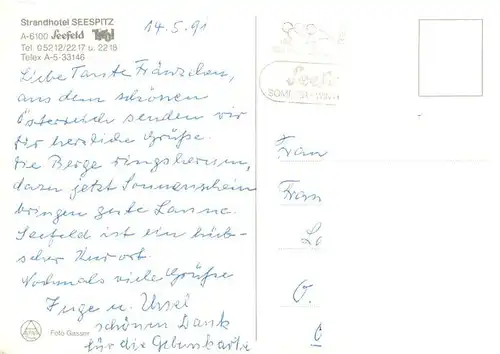 Strandhotel SEESPITZ
A-6100 Seefeld Tirol
Tel. 05212/2217 u. 2218
Telex A-5-33146
14.5.91
Liebe Tante Fränzchen,
aus dem schönen
Österreich senden wir
Dir herzliche Grüße.
Die Berge ringsherum,
dazu jetzt Sonnenschein
bringen gute Laune.
Seefeld ist ein hüb-
scher Kurort.
Nochmals viele Grüße
Inge u. Ursel
schönen Dank
für die Geburtskarte
Foto Gasser
Seefeld
SOMMER WINTER
Frau
Fran
Lo